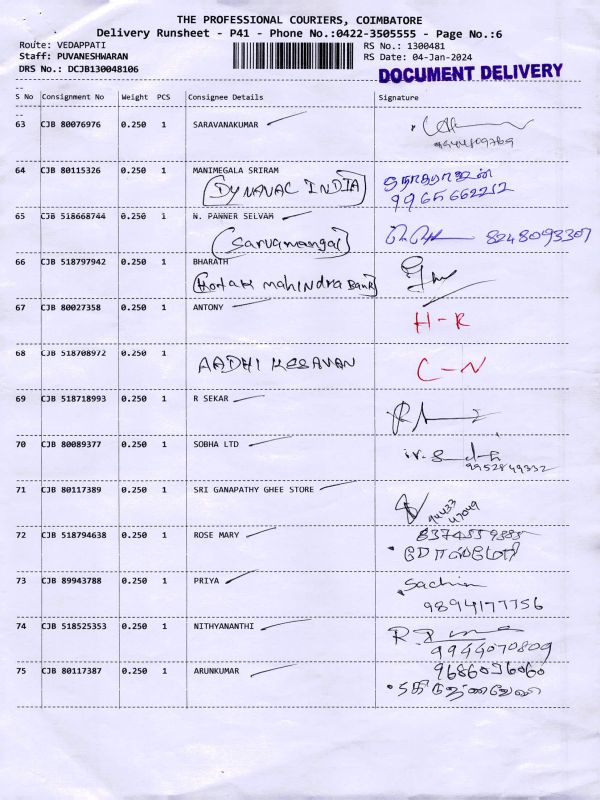 THE PROFESSIONAL COURIERS, COIMBATORE
Delivery Runsheet - P41 - Phone No.:0422-3505555 - Page No.:6
Route: VEDAPPATI RS No.: 1300481
Staff: PUVANESHWARAN RS Date: 04-Jan-2024
DRS No.: DCJB130048106 DOCUMENT DELIVERY
S No Consignment No Weight PCS Consignee Details Signature
63 CJB 80076976 0.250 1 SARAVANAKUMAR
9944809769
64 CJB 80115326 0.250 1 MANIMEGALA SRIRAM
(DYNANAC INDIA) 9965662212
65 CJB 518668744 0.250 1 N. PANNER SELVAM
(Sarvamangal) 8248093307
66 CJB 518797942 0.250 1 BHARATH
(Kotak mahindra Bank)
67 CJB 80027358 0.250 1 ANTONY H-R
68 CJB 518708972 0.250 1 AADHI KESAVAN C-N
69 CJB 518718993 0.250 1 R SEKAR
70 CJB 80089377 0.250 1 SOBHA LTD
9952849332
71 CJB 80117389 0.250 1 SRI GANAPATHY GHEE STORE
94433
47049
72 CJB 518794638 0.250 1 ROSE MARY 8374559885
ரோஸ்மேரி
73 CJB 89943788 0.250 1 PRIYA Sachin
9894177756
74 CJB 518525353 0.250 1 NITHYANANTHI
9944070809
75 CJB 80117387 0.250 1 ARUNKUMAR 9686096060